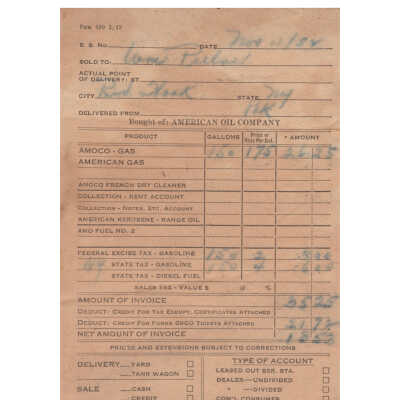 S. S. No. DATE Nov 11/52
SOLD TO:
ACTUAL POINT
OF DELIVERY: ST.
CITY Red Hook STATE NY
DELIVERED FROM
Bought of: AMERICAN OIL COMPANY
PRODUCT GALLONS AMOUNT
AMOCO - GAS 150 175 26 25
AMERICAN GAS
AMOCO FRENCH DRY CLEANER
COLLECTION - RENT ACCOUNT
COLLECTION - NOTES, ETC. ACCOUNT
AMERICAN KEROSENE - RANGE OIL
AND FUEL NO. 2
FEDERAL EXCISE TAX - GASOLINE 150 2 3 00
STATE TAX - GASOLINE 150 4 6 00
STATE TAX - DIESEL FUEL
SALES TAX - VALUE $ @ %
AMOUNT OF INVOICE 35 25
DEDUCT: CREDIT FOR TAX EXEMPT. CERTIFICATES ATTACHED
DEDUCT: CREDIT FOR FORMS ATTACHED 21 72
NET AMOUNT OF INVOICE 13 53
PRICES AND EXTENSIONS SUBJECT TO CORRECTIONS
DELIVERY YARD TYPE OF ACCOUNT
TANK WAGON LEASED OUT SER. STA.
DEALER - UNDIVIDED
SALE CASH " - DIVIDED
CREDIT COM'L CONSUMER